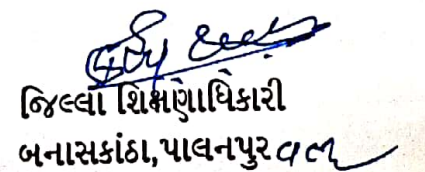 જિલ્લા શિક્ષણાધિકારી
બનાસકાંઠા,પાલનપુર વતી